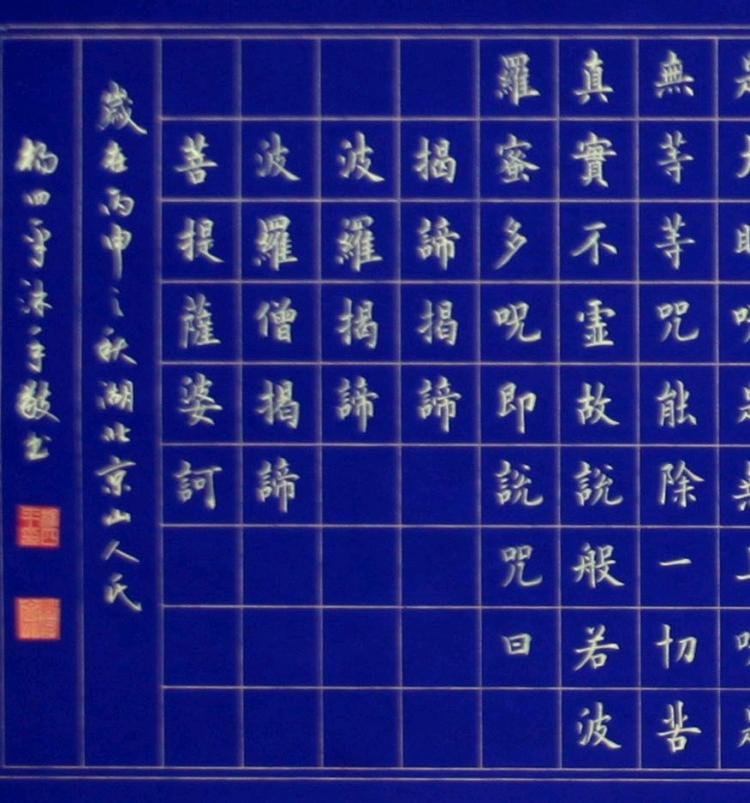 無等等咒能除一切苦
真實不霊故說般若波
羅蜜多呪即說咒曰
揭諦揭諦
波羅揭諦
波羅僧揭諦
菩提薩婆訶
歲在丙申之秋湖北京山人氏
楊四平沐手敬书